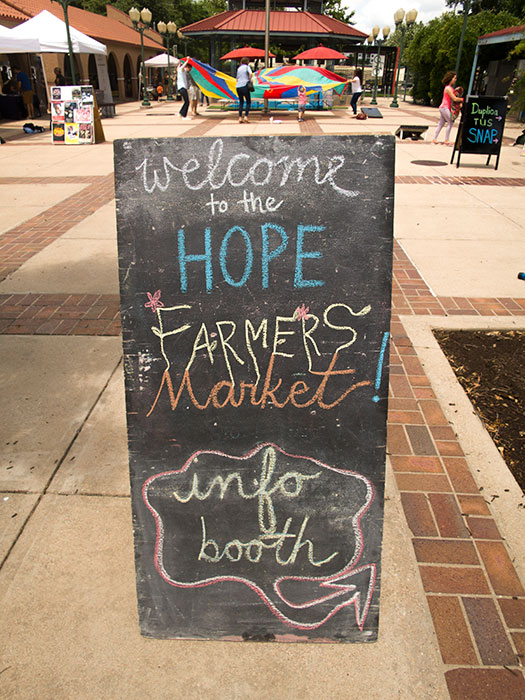 welcome
to the
HOPE
FARMERS
Market!
info
booth
Duplica
TUS
SNAP